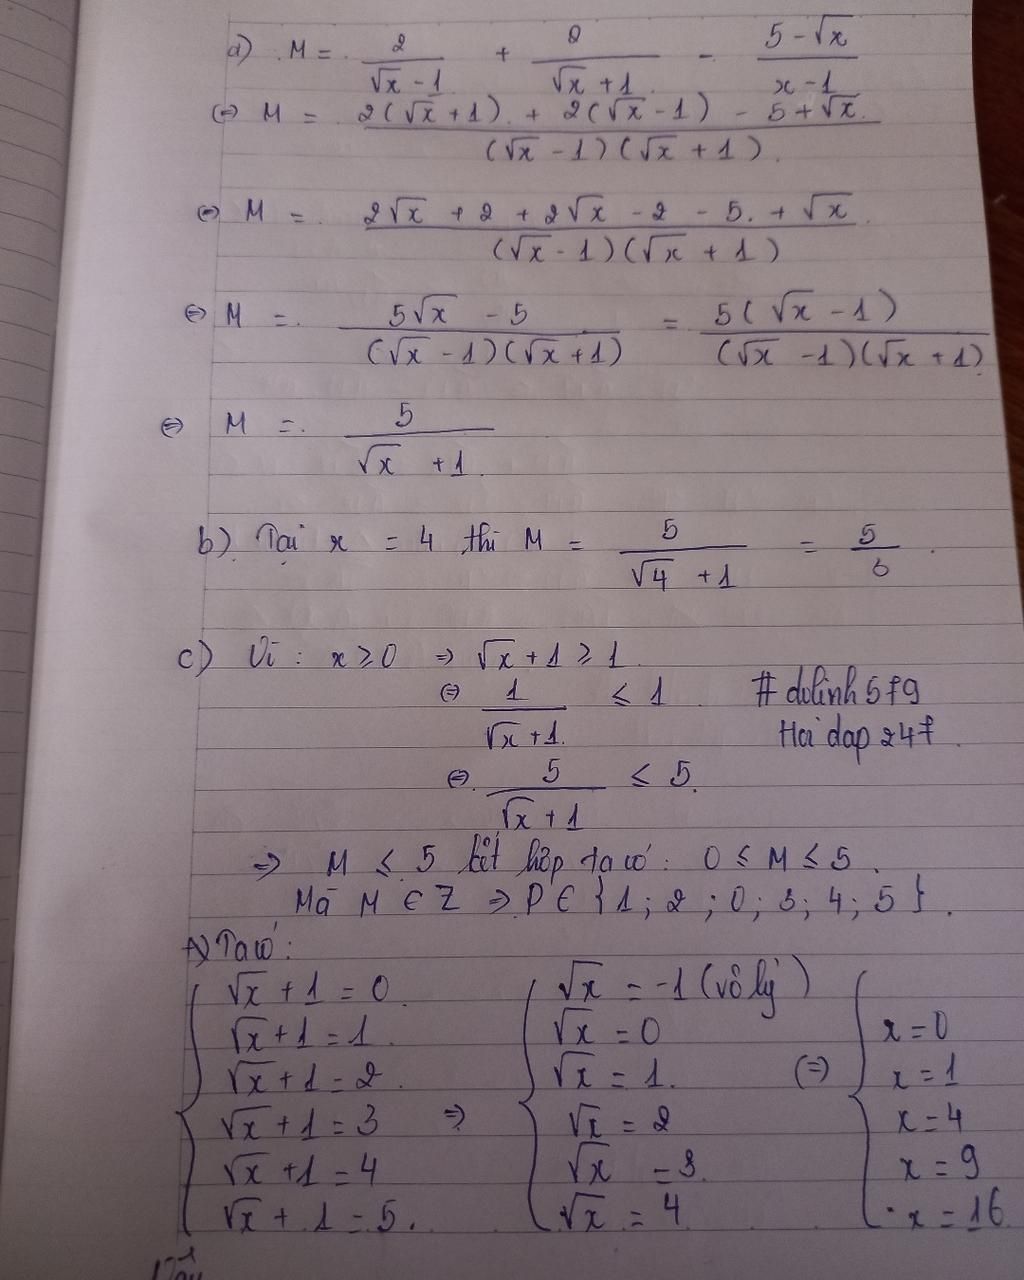 a) M = 2/(√x - 1) + 2/(√x + 1) - (5 - √x)/(x - 1)
(=) M = (2(√x + 1) + 2(√x - 1) - 5 + √x)/((√x - 1)(√x + 1))
(=) M = (2√x + 2 + 2√x - 2 - 5 + √x)/((√x - 1)(√x + 1))
(=) M = (5√x - 5)/((√x - 1)(√x + 1)) = (5(√x - 1))/((√x - 1)(√x + 1))
(=) M = 5/(√x + 1)
b) Tại x = 4 thì M = 5/(√4 + 1) = 5/3
c) Vì : x ≥ 0 => √x + 1 ≥ 1
(=) 1/(√x + 1) ≤ 1
# dolinh579
Hoi dap 247
(=) 5/(√x + 1) ≤ 5
=> M ≤ 5 kết hợp ta có : 0 ≤ M ≤ 5
Mà M ∈ Z => P ∈ {1 ; 2 ; 0 ; 3 ; 4 ; 5}.
Ta có :
{ √x + 1 = 0 { √x = -1 (vô lý)
√x + 1 = 1 √x = 0 { x = 0
√x + 1 = 2 √x = 1 (=) x = 1
√x + 1 = 3 => √x = 2 x = 4
√x + 1 = 4 √x = 3 x = 9
√x + 1 = 5. √x = 4 x = 16